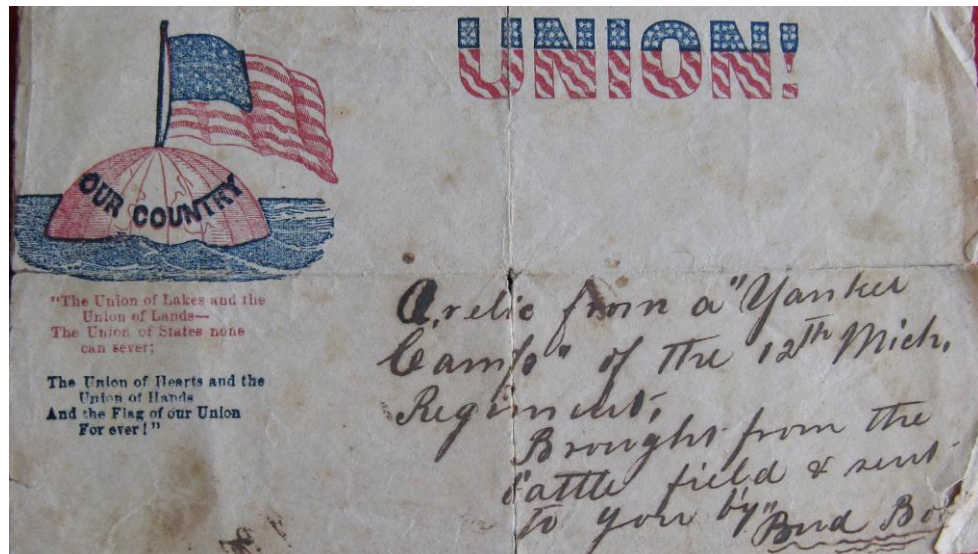 UNION!
OUR COUNTRY
"The Union of Lakes and the
Union of Lands—
The Union of States none
can sever;
The Union of Hearts and the
Union of Hands
And the Flag of our Union
For ever!"
A relic from a "Yankee
Camp" of the 12th Mich.
Regiment.
Brought from the
battle field & sent
to you by "Bud